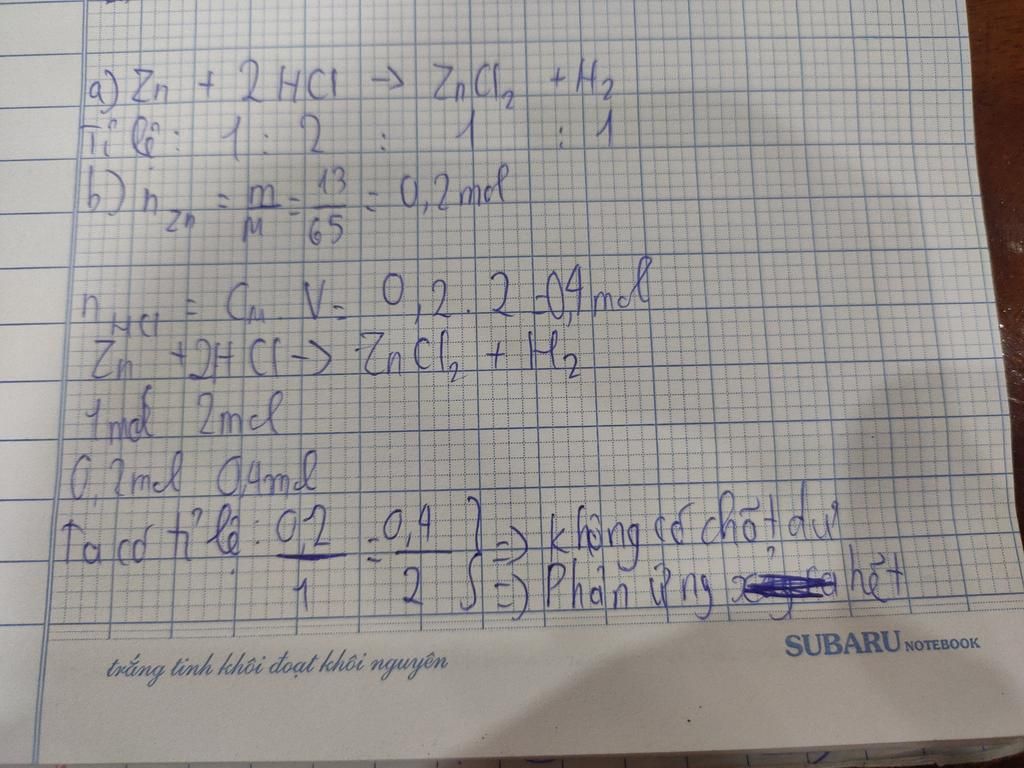 a) Zn + 2HCl → ZnCl₂ + H₂
Tỉ lệ: 1 : 2 : 1 : 1
b) n Zn = m/M = 13/65 = 0,2 mol
n HCl = C_M . V = 0,2 . 2 = 0,4 mol
Zn + 2HCl → ZnCl₂ + H₂
1mol 2mol
0,2mol 0,4mol
Ta có tỉ lệ: 0,2/1 = 0,4/2 } => không có chất dư
=> Phản ứng hết
SUBARU NOTEBOOK
trắng tinh khôi đoạt khôi nguyên